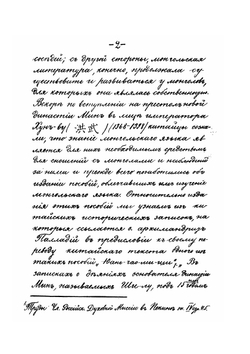 — 2 —
сосѣдей; съ другой стороны, монгольская
литература, конечно, продолжала су-
ществовать и развиваться у монголовъ,
для которыхъ она являлась собственною.
Вскорѣ по вступленіи на престолъ новой
династіи Минъ въ лицѣ императора
Хунъ-ву (洪武) (1368-1398) китайцы созна-
ли, что знаніе монгольскаго языка яв-
ляется для нихъ необходимымъ средствомъ
для сношеній съ монголами и наблюденій
за ними и прежде всего позаботились объ
изданіи пособій, облегчавшихъ имъ изученіе
монгольскаго языка. Относительно изда-
нія этихъ пособій мы узнаемъ изъ ки-
тайскихъ историческихъ записокъ, на
которыя ссылается о. архимандритъ
Палладій въ предисловіи къ своему пе-
реводу китайскаго текста одного изъ
такихъ пособій, Въ
записяхъ о дѣяніяхъ основателя династіи
Минъ, называемыхъ Ши-лу, подъ 15 годомъ
Труды Чл. Россійск. Духовной Миссіи въ Пекинѣ